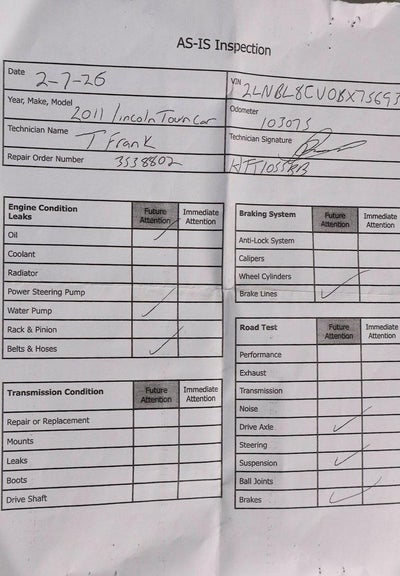 AS-IS Inspection
Date 2-7-26
VIN 2LNBL8CV0BX75693
Year, Make, Model 2011 Lincoln Town Car
Odometer 103075
Technician Name T Frank
Technician Signature
Repair Order Number 3538802
Engine Condition Leaks Future Attention Immediate Attention
Oil ✓
Coolant
Radiator
Power Steering Pump
Water Pump ✓
Rack & Pinion
Belts & Hoses ✓
Transmission Condition Future Attention Immediate Attention
Repair or Replacement
Mounts
Leaks
Boots
Drive Shaft
Braking System Future Attention Immediate Attention
Anti-Lock System
Calipers
Wheel Cylinders
Brake Lines ✓
Road Test Future Attention Immediate Attention
Performance
Exhaust
Transmission
Noise
Drive Axle ✓
Steering
Suspension ✓
Ball Joints
Brakes ✓